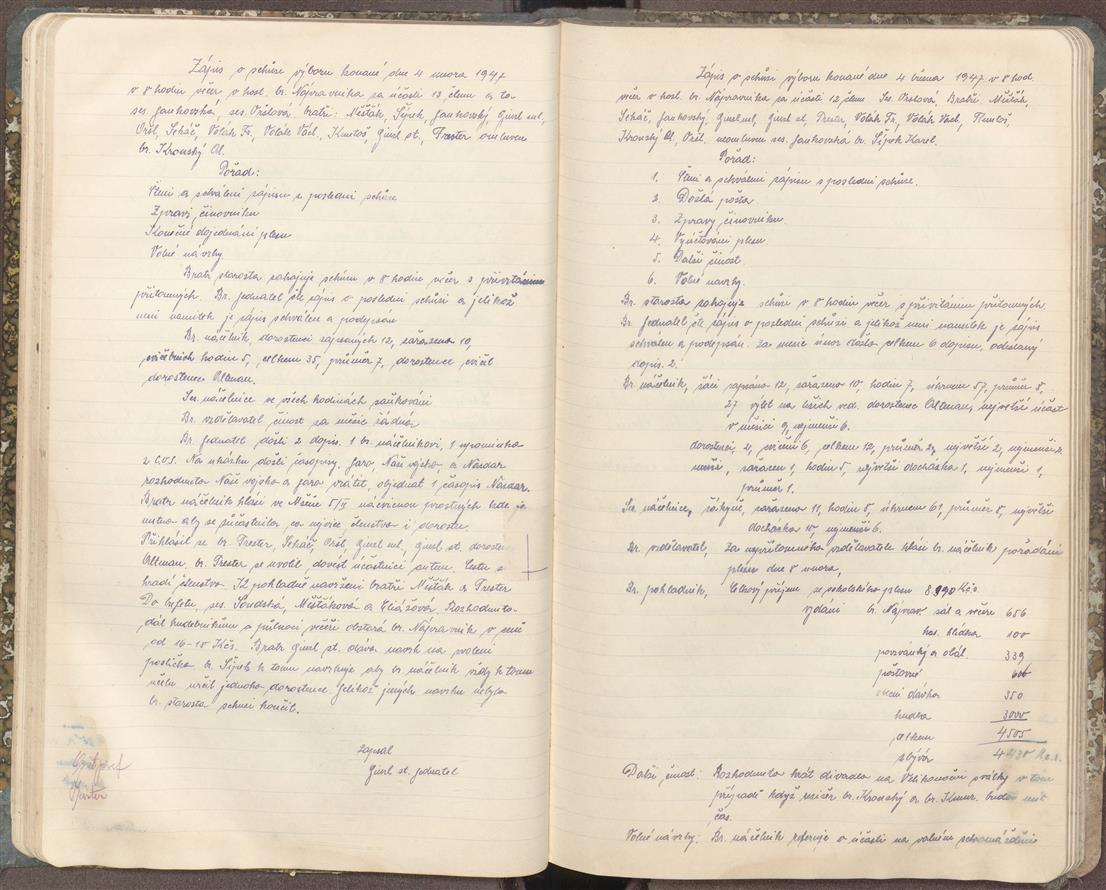 Zápis o schůzi výboru konané dne 4 února 1947
v 8 hodin večer v host. br. Nápravníka za účasti 13 členu a to
ses. Jankovská, ses. Oršlová, bratři: Měšťák, Šípek, Jankovský, Giml ml,
Oršl, Seháč, Volák Fr, Volák Václ, Kuntoš, Giml st, Trester omluven
br. Kronský Al.
Pořad:
Čteni a schválení zápisu z poslední schůze
Zpravy činovníku
Konečné dojednání plesu
Volné návrhy
Bratr starosta zahajuje schůzi v 8 hodin večer s přivítáním
přítomných. Br. jednatel čte zápis o poslední schůsi a jelikož
není namitek je zápis schválen a podepsán
Br. náčelník, dorostenci zapsaných 12, zařazeno 10,
cvičebních hodin 5, celkem 35, průměr 7, dorostence cvičil
dorostenec Ollman.
Ses. náčelnice ve všech hodinách saňkování
Br. vzdělavatel činost za měsíc žádná
Br. Jednatel došli 2 dopis. 1 br. náčelníkovi, 1 upomínka
z Č.O.S. Na ukázku došli časopisy. Jaro, Naše vojsko, a Nazdar
rozhodnuto Naše vojsko a Jaro vrátit, objednat 1 časopis Nazdar.
Bratr náčelník hlási ve Mšeně 5/II nácvičnou prostných bude
nutno aby se zúčastnilo co nejvíce členstva i dorostu.
Přihlásil se br. Trester, Seháč, Oršl, Giml ml, Giml st. dorosten
Ollman. br. Trester se uvolil dovést účastníci autem. Cestu si
hradí členstvo K pokladně navrženi bratři Měšťák a Trester
Do bufetu, ses. Soudská, Měšťáková a Eliášová. Rozhodnuto
dál hudebníkům o půlnoci večeři obstará br. Nápravník v ceně
od 16-18 Kčs. Bratr Giml st. dává navrh na zvolení
poslíčka br. Šípek k tomu navrhuje aby br. náčelník vždy k tomu
účelu určil jednoho dorostence. Jelikož jiných navrhu nebylo
br. starosta schuzi končil.
zapsal
Giml st. jednatel
Zápis o schůsi výboru konané dne 4 března 1947 v 8 hod.
večer v host. br. Nápravníka za účasti 12 členu Ses. Oršlová, Bratři, Měšťák,
Seháč, Jankovský, Giml ml, Giml st, Trester, Volák Fr, Volák Václ, Kuntoš,
Kronský Al, Oršl. neomluven ses. Jankovská br. Šípek Karel.
Pořad:
1. Čteni a schválení zápisu s poslední schůze.
2. Došlá pošta
3. Zpravy činovníku.
4. Vyúčtování plesu.
5. Další činost.
6. Volné navrhy.
Br. starosta zahajuje schůsi v 8 hodin večer s přivítáním přítomných.
Br. Jednatel čte zápis o poslední schůsi a jelikož není namitek je zápis
schválen a podepsán. Za měsíc únor došlo celkem 6 dopisu, odeslaný
dopis. 2.
Br. náčelník, žáci zapsáno 12, zařazeno 10, hodin 7, úhrnem 57, průměr 8,
27 výlet na lyžích ved. dorostenec Ollman, největší účast
v měsíci 9, nejmenší 6.
dorostenci, 2, cvičeni 6, celkem 12, průměr 2, největší 2, nejmenší 2
muži, zařazen 1, hodin 5, největší docházka 1, nejmenší 1,
průměr 1.
Ses. náčelnice, žákyně, zařazeno 11, hodin 8, úhrnem 61, průměr 8, největší
docházka 10, nejmenší 6.
Br. vzdělavatel, Za nepřítomného vzdělavatele hlási br. náčelník pořádání
plesu dne 8 února,
Br. pokladník, Celkový příjem ze sokolského plesu 8.990 Kčs.
vydání br. Nápravn. sál a večeře 656
has. hlídka 100
pozvanky a obál. 339
poštovné
dávka 350
hudba 3000
celkem 4505
zbývá
Další činost: Rozhodnuto hrát divadlo na Velikonoční svátky v tom
případě když režisér br. Kronský a br. Kmur. budou mít
čas.
Volné návrhy: Br. náčelník referuje o účasti na valném schromáždění